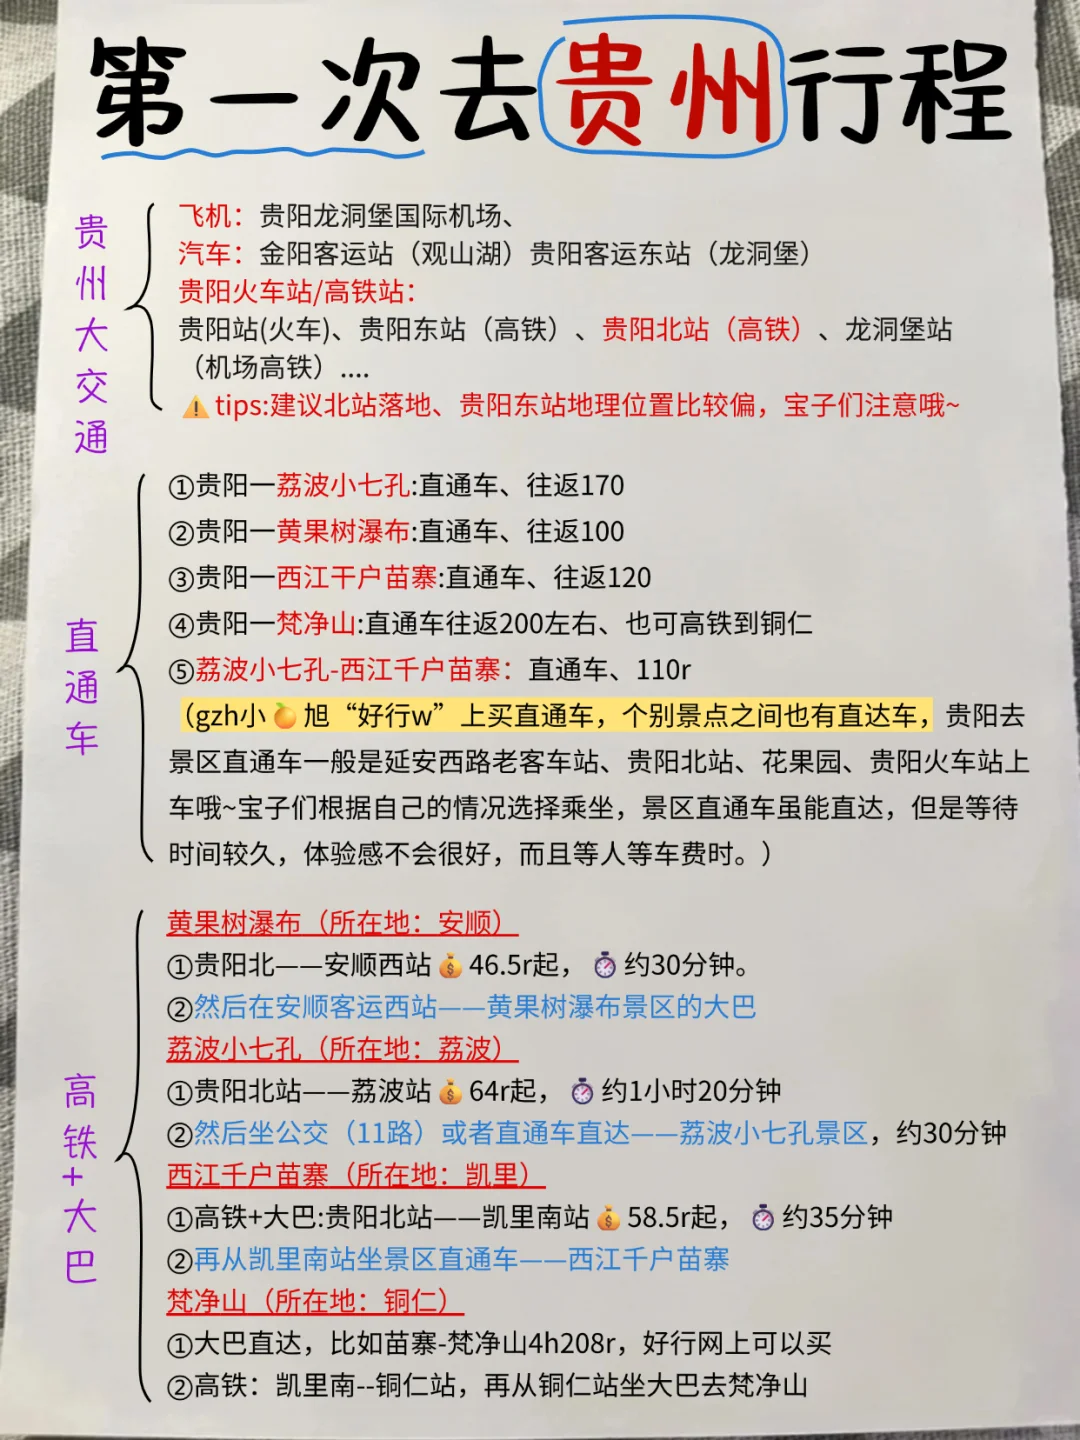 第一次去贵州行程
贵州大交通
飞机：贵阳龙洞堡国际机场、
汽车：金阳客运站（观山湖）贵阳客运东站（龙洞堡）
贵阳火车站/高铁站：
贵阳站(火车)、贵阳东站（高铁）、贵阳北站（高铁）、龙洞堡站
（机场高铁）....
⚠️tips:建议北站落地、贵阳东站地理位置比较偏，宝子们注意哦~
直通车
①贵阳一荔波小七孔:直通车、往返170
②贵阳一黄果树瀑布:直通车、往返100
③贵阳一西江干户苗寨:直通车、往返120
④贵阳一梵净山:直通车往返200左右、也可高铁到铜仁
⑤荔波小七孔-西江千户苗寨：直通车、110r
（gzh小🍊旭“好行w”上买直通车，个别景点之间也有直达车，贵阳去
景区直通车一般是延安西路老客车站、贵阳北站、花果园、贵阳火车站上
车哦~宝子们根据自己的情况选择乘坐，景区直通车虽能直达，但是等待
时间较久，体验感不会很好，而且等人等车费时。）
高铁+大巴
黄果树瀑布（所在地：安顺）
①贵阳北——安顺西站💰46.5r起，⏱约30分钟。
②然后在安顺客运西站——黄果树瀑布景区的大巴
荔波小七孔（所在地：荔波）
①贵阳北站——荔波站💰64r起，⏱约1小时20分钟
②然后坐公交（11路）或者直通车直达——荔波小七孔景区，约30分钟
西江千户苗寨（所在地：凯里）
①高铁+大巴:贵阳北站——凯里南站💰58.5r起，⏱约35分钟
②再从凯里南站坐景区直通车——西江千户苗寨
梵净山（所在地：铜仁）
①大巴直达，比如苗寨-梵净山4h208r，好行网上可以买
②高铁：凯里南--铜仁站，再从铜仁站坐大巴去梵净山